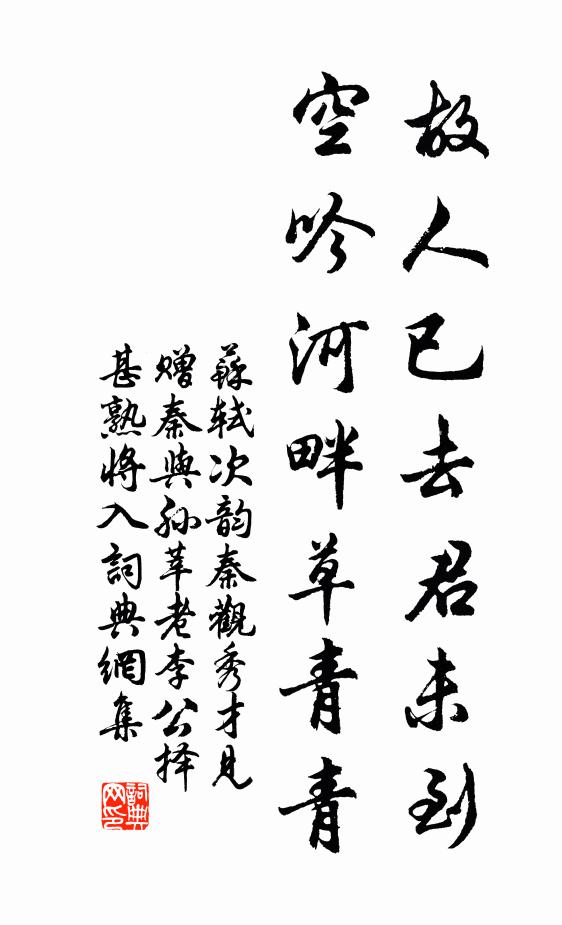 故人已去君未到
空吟河畔草青青
蘇軾次韵秦觀秀才見
赠秦與孙莘老李公择
甚熟将入詞典網集
詞典
网印